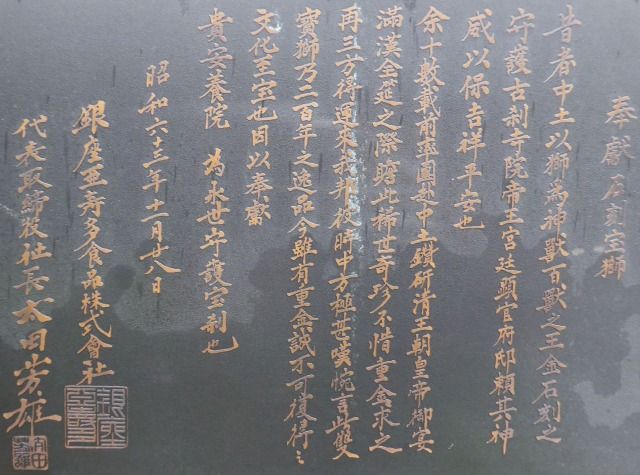 奉獻石刻宝獅
昔者中土以獅為神獣百獣之王金石刻之
守護古刹寺院帝王宮廷顕官府邸頼其神
威以保吉祥平安也
余十数載前率團赴中土鑽研清王朝皇帝御宴
満漢全筵之際瞻此稀世奇珍不惜重金求之
再三方得運来我邦彼時中方極甚嘆惋言此雙
寳獅乃二百年之逸品今雖有重金誠不可獲得之
文化至宝也因以奉獻
貴安養院 為永世守護宝刹也
昭和六十三年十一月廿八日
銀座亜寿多食品株式會社
代表取締役社長 太田芳雄